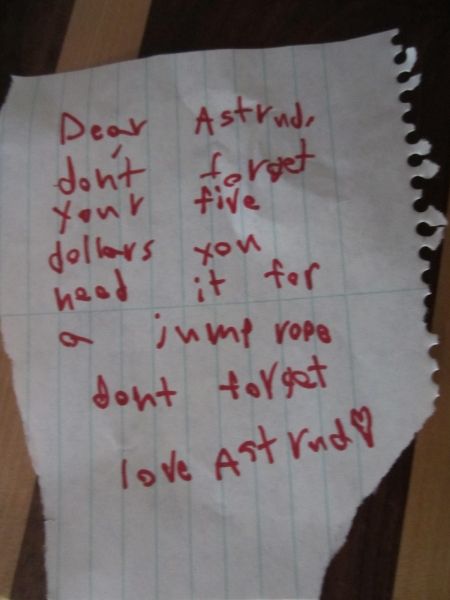 Dear Astrnd,
don't forget
your five
dollars you
need it for
a jump rope
dont forget
love Astrnd♡